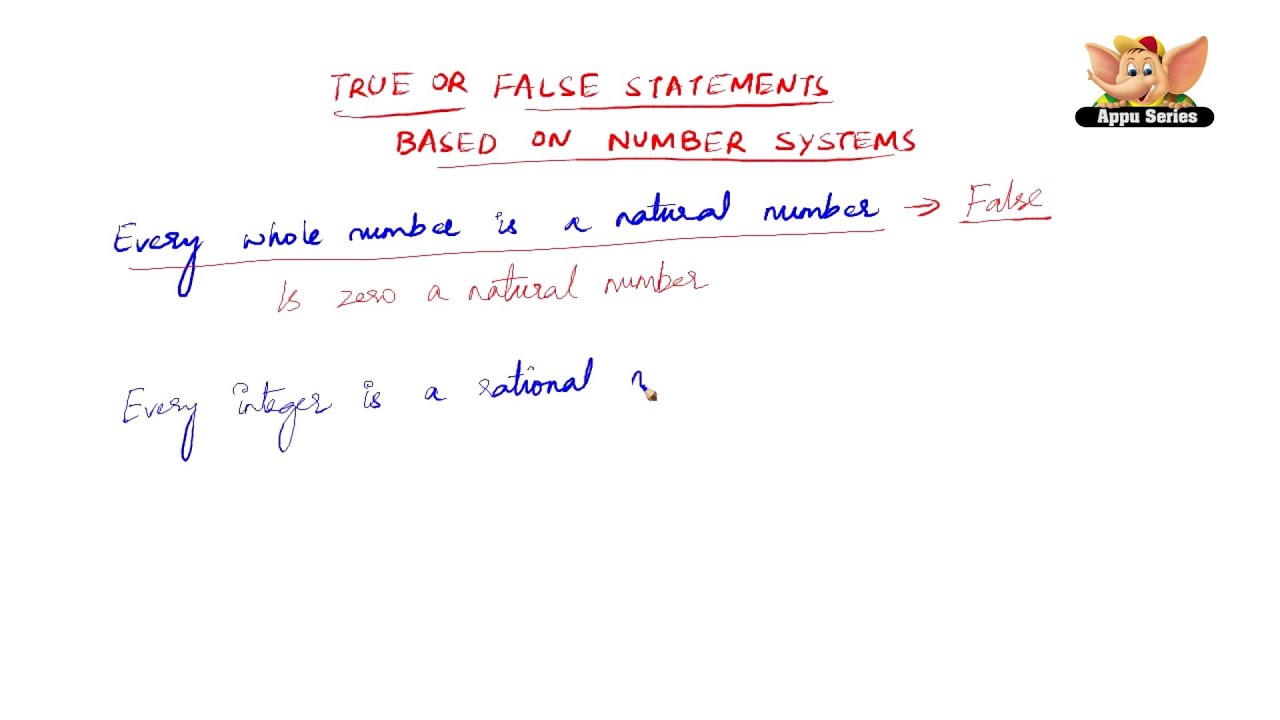 TRUE OR FALSE STATEMENTS
BASED ON NUMBER SYSTEMS
Appu Series
Every whole number is a natural number → False
Is zero a natural number
Every integer is a rational n